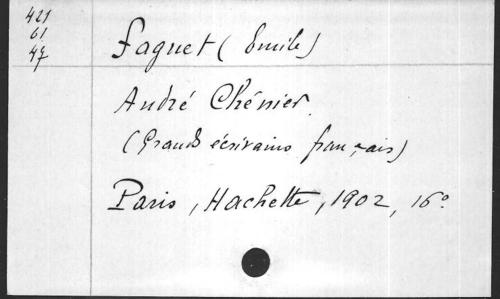 421
61
47
Faguet (Emile)
André Chénier.
(Grands écrivains français)
Paris, Hachette, 1902, 16°